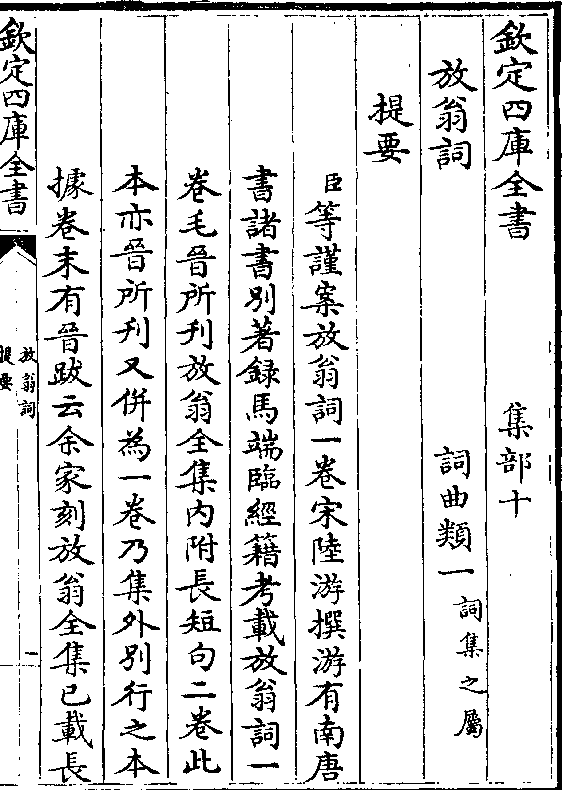 欽定四庫全書 集部十
放翁詞 詞曲類一 詞集之屬
提要
臣等謹案放翁詞一卷宋陸游撰游有南唐
書諸書别著録馬端臨經籍考載放翁詞一
卷毛晉所刊放翁全集内附長短句二卷此
本亦晉所刊又併為一卷乃集外别行之本
據卷末有晉跋云余家刻放翁全集已載長
欽定四庫全書
放翁詞
提要
一